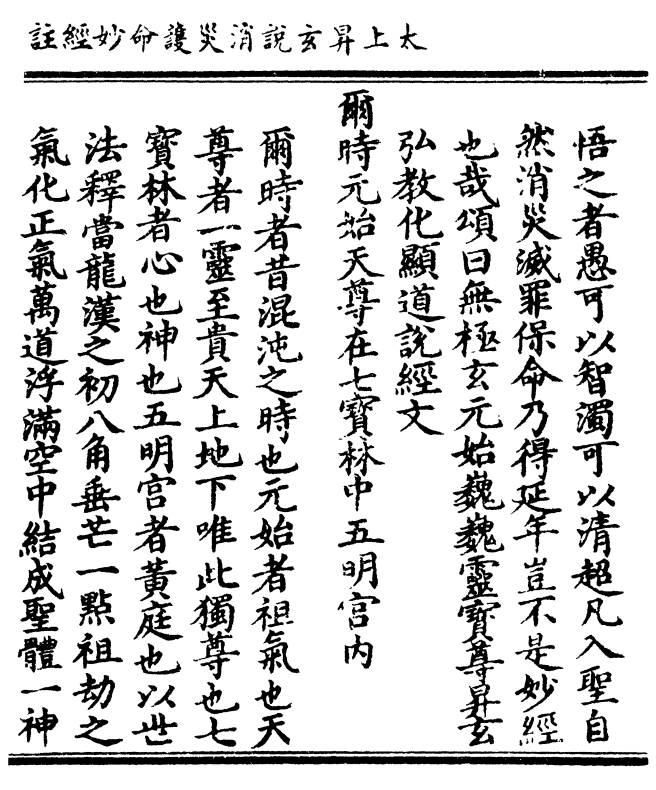 太上昇玄說消災護命妙經註
悟之者愚可以智濁可以清超凡入聖自
然消災滅罪保命乃得延年豈不是妙經
也哉頌曰無極玄元始巍巍靈寶尊昇玄
弘教化顯道說經文
爾時元始天尊在七寶林中五明宮內
爾時者昔混沌之時也元始者祖氣也天
尊者一靈至貴天上地下唯此獨尊也七
寶林者心也神也五明宮者黃庭也以世
法釋當龍漢之初八角垂芒一點祖劫之
氣化正氣萬道浮滿空中結成聖體一神